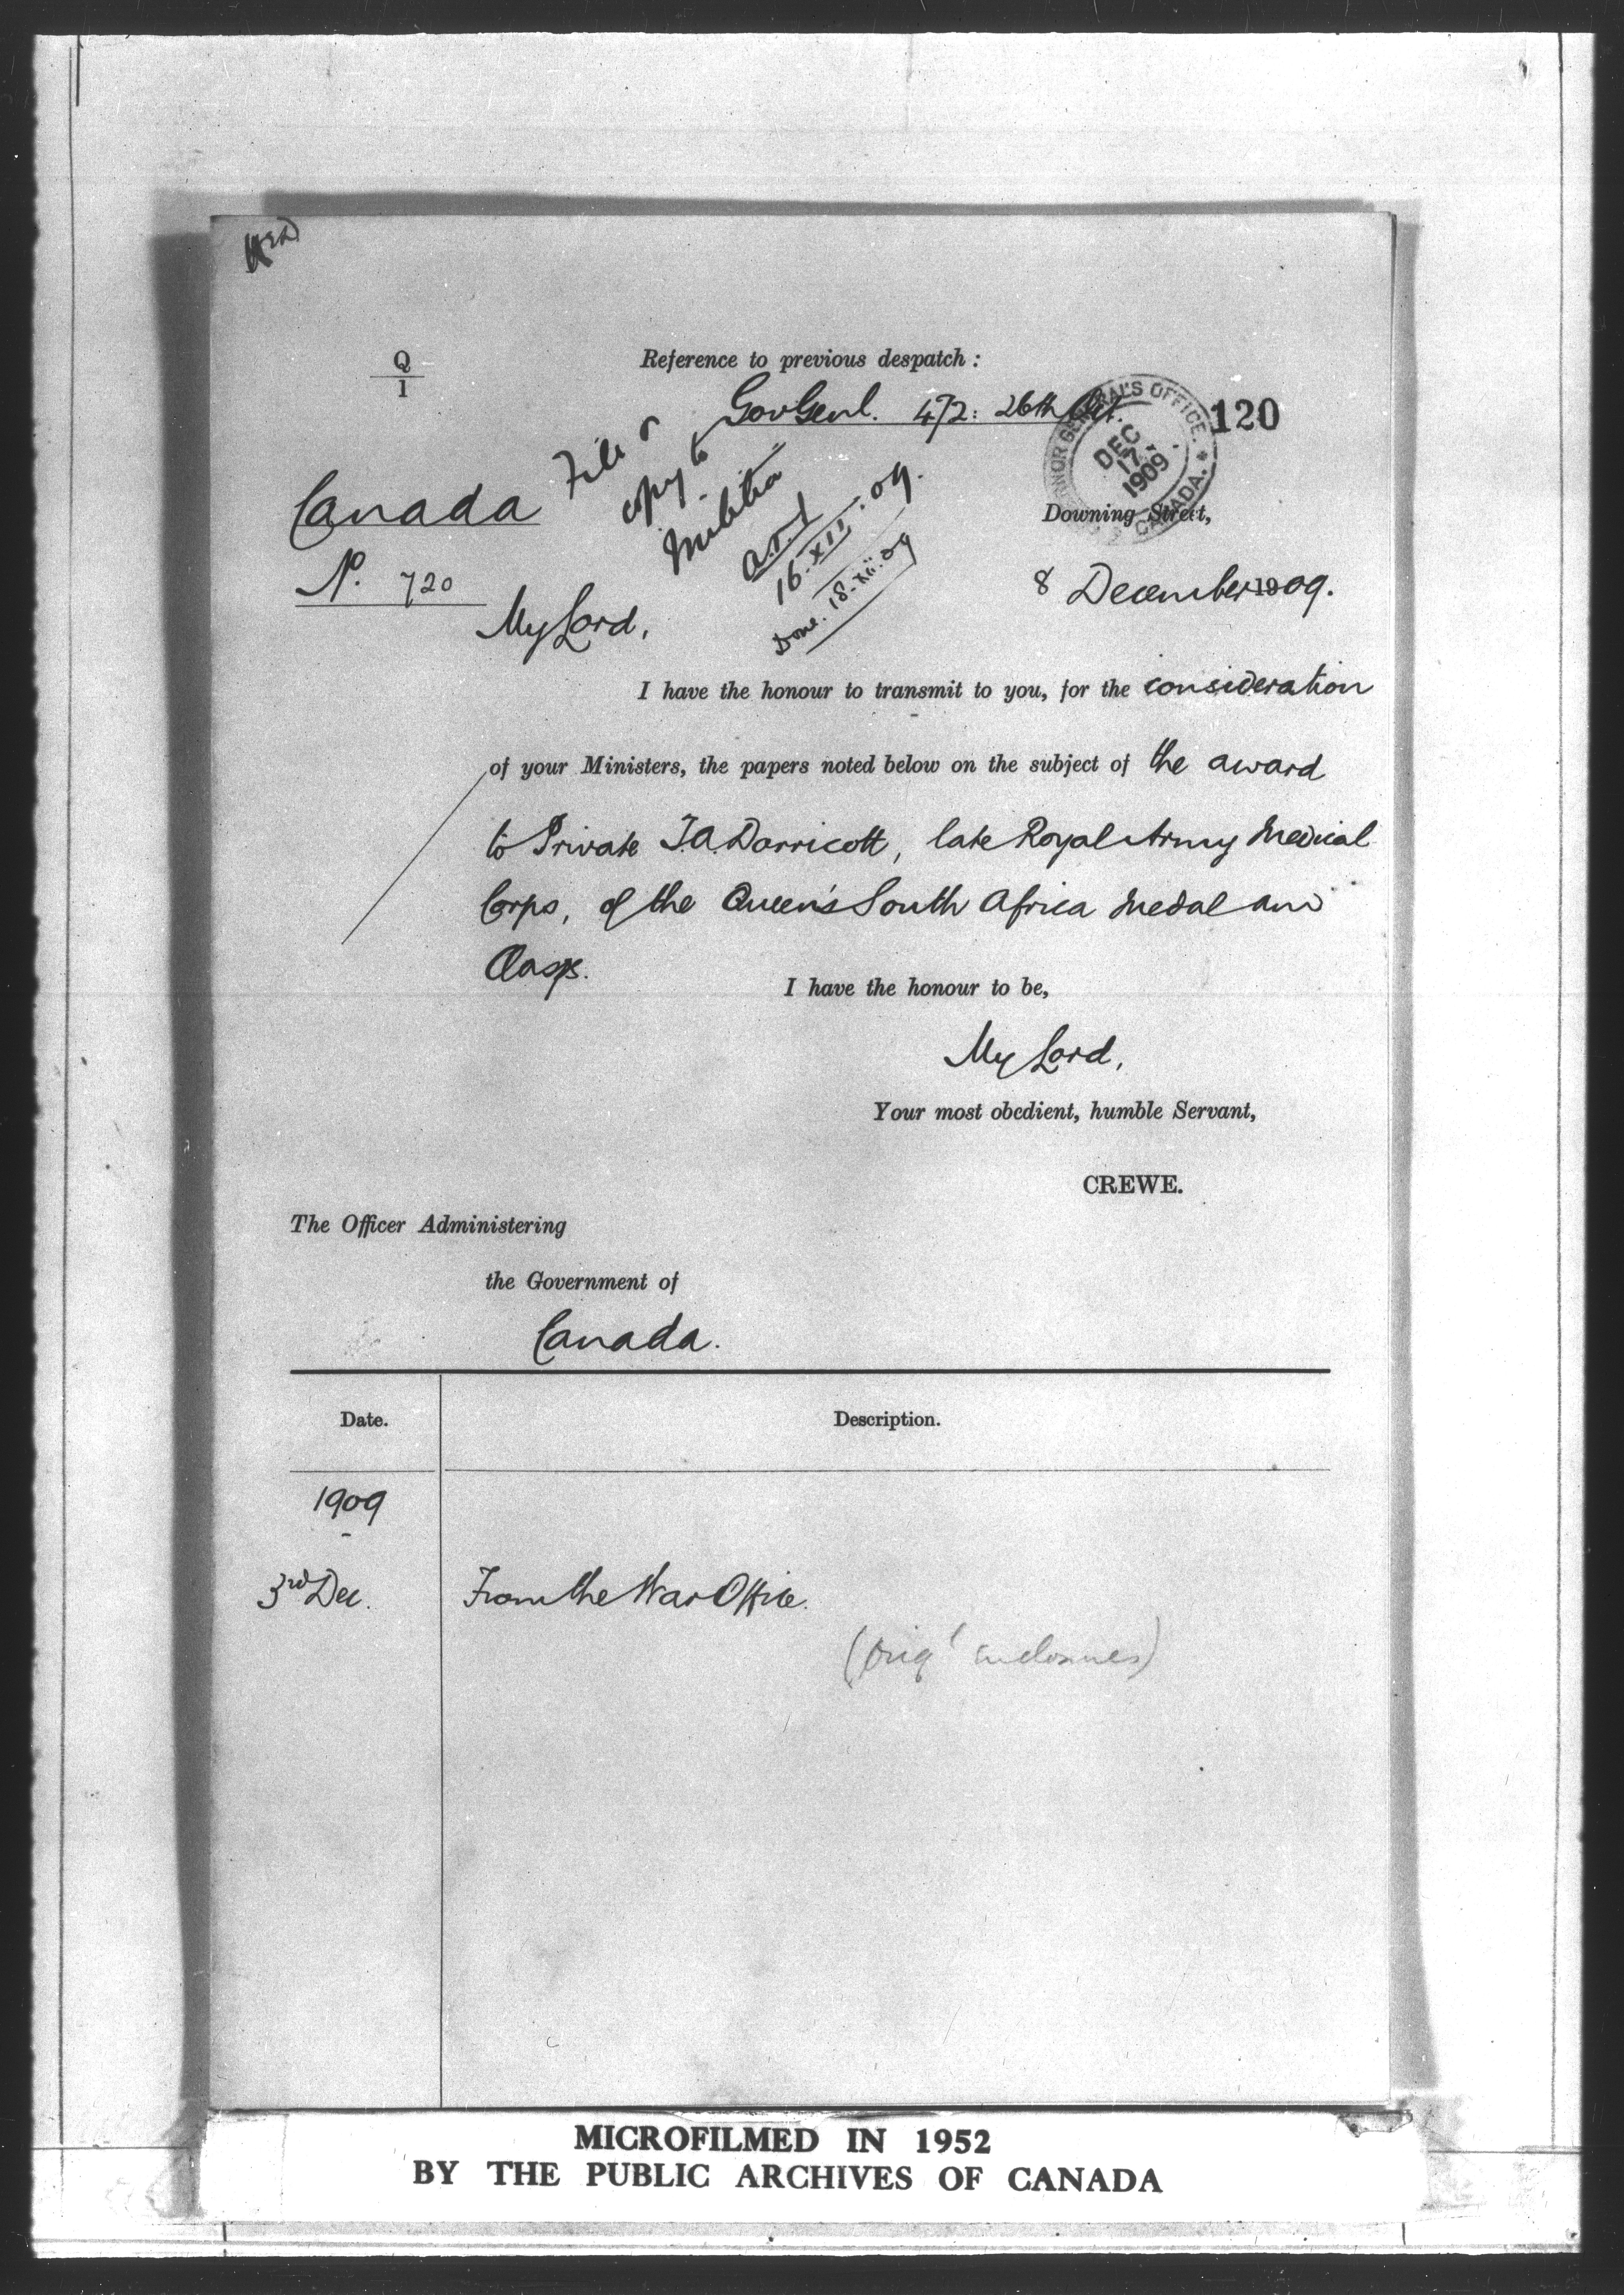 Q
1
Reference to previous despatch :
Gov Genl. 472: 26th Oct.
120
GOVERNOR GENERAL'S OFFICE. CANADA.
DEC
17
1909
File &
copy to
Militia
16.XII.09.
Done. 18.xii.09
Canada
Downing Street,
No. 720
8 December 1909.
My Lord,
I have the honour to transmit to you, for the consideration
of your Ministers, the papers noted below on the subject of the award
to Private T.A. Darricott, late Royal Army Medical
Corps, of the Queen's South Africa Medal and
Clasps.
I have the honour to be,
My Lord,
Your most obedient, humble Servant,
CREWE.
The Officer Administering
the Government of
Canada.
Date.
Description.
1909
3rd Dec.
From the War Office.
(Orig l enclosures)
MICROFILMED IN 1952
BY THE PUBLIC ARCHIVES OF CANADA